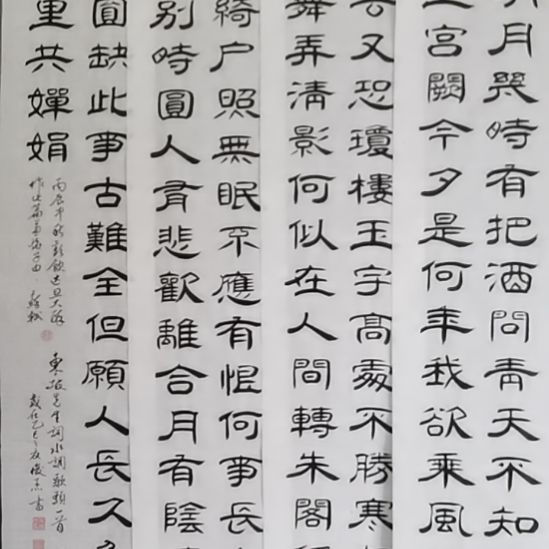 月幾時有把酒問青天不知
宮闕今夕是何年我欲乘風
去又恐瓊樓玉宇高處不勝寒
舞弄清影何似在人間轉朱閣
綺户照無眠不應有恨何事長
别時圓人有悲歡離合月有陰
圓缺此事古難全但願人長久
里共嬋娟
丙辰中秋歡飲達旦大醉
作此篇兼懷子由
東坡先生詞水調歌頭一首
歲在乙巳